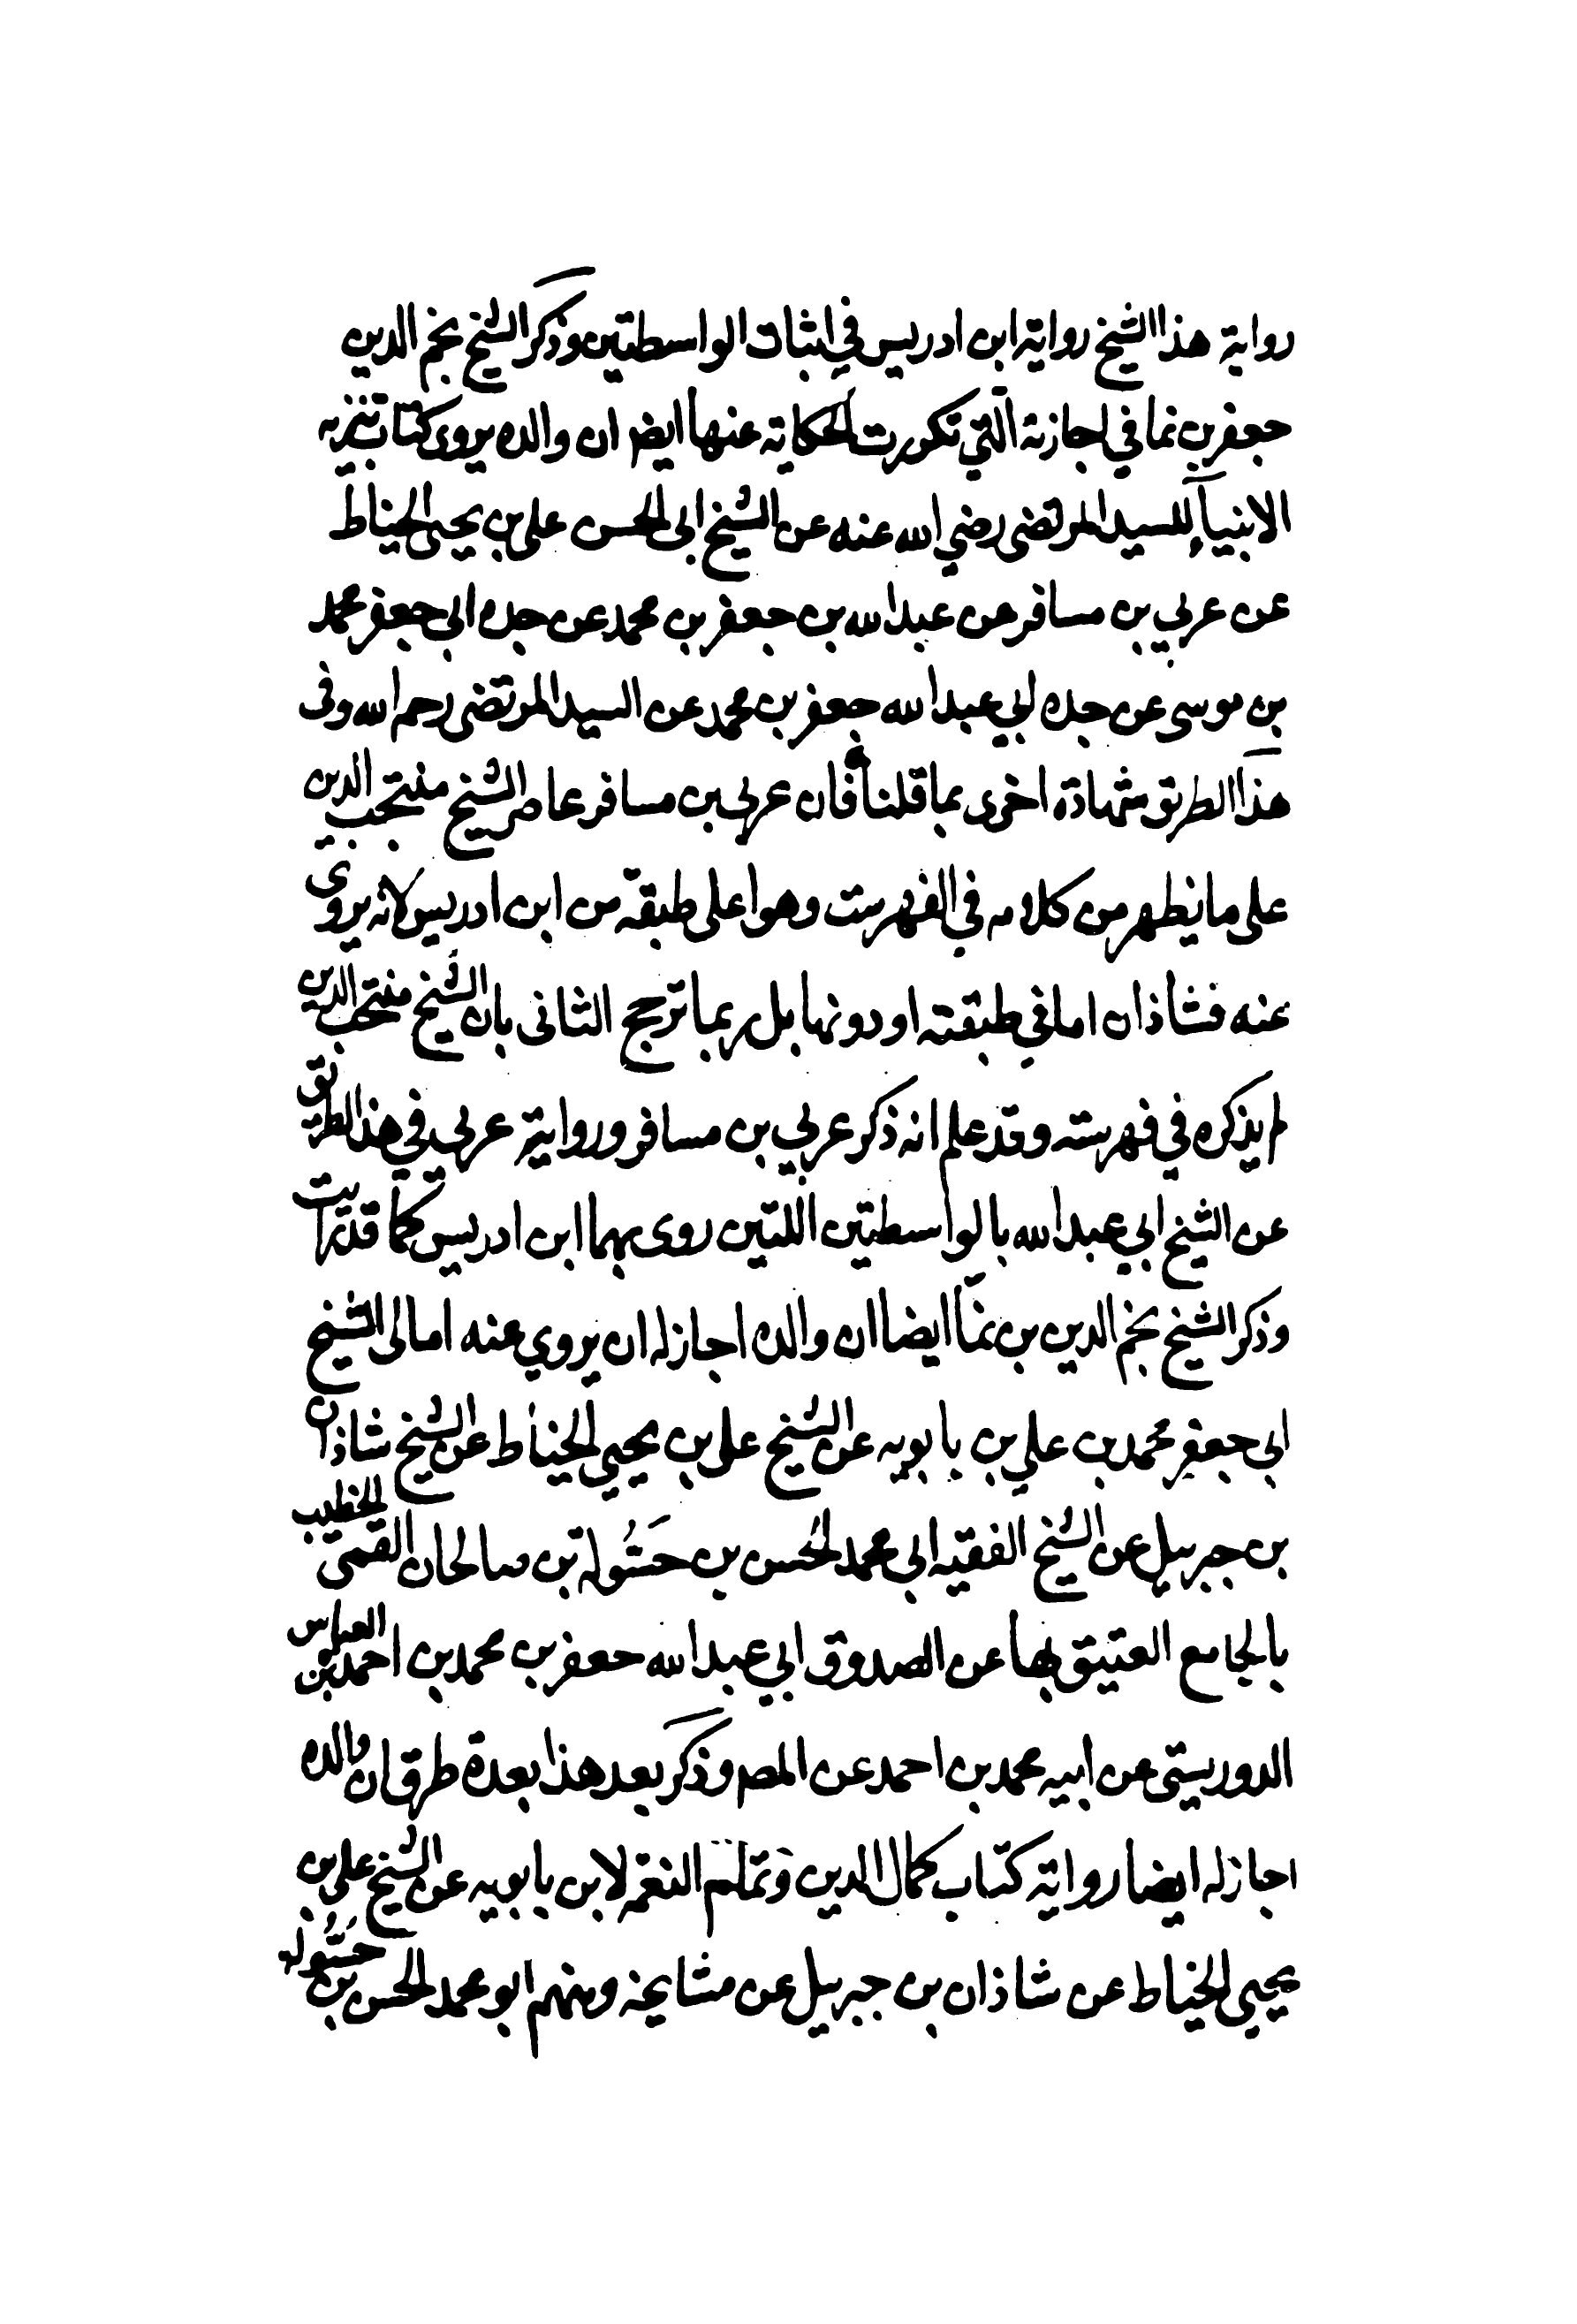 رواية هذا الشيخ رواية ابن ادريس في اثبات الواسطتين وذكر الشيخ نجم الدين
جعفر بن نما في اجازته التي تكررت الحكاية عنها ايضا ان والده يروى كتاب تنزيه
الانبياء للسيد المرتضى رضي الله عنه عن الشيخ ابى الحسن على بن يحيى الحناط
عن عربي بن مسافر عن عبد الله بن جعفر بن محمد عن جده ابى جعفر محمد
بن موسى عن جده ابي عبد الله جعفر بن محمد عن السيد المرتضى رحمه الله وفى
هذا الطريق شهادة اخرى بما قلناه فان عربي بن مسافر عاصر الشيخ منتجب الدين
على ما يظهر من كلامه في الفهرست وهو اعلى طبقة من ابن ادريس لانه يروي
عنه فشاذان اما في طبقته او دونها بل ربما ترجح الثانى بان الشيخ منتجب الدين
لم يذكره في فهرسته وقد علم انه ذكر عربي بن مسافر ورواية عربي في هذا الطريق
عن الشيخ ابي عبد الله بالواسطتين اللتين روى بهما ابن ادريس كما قد رايت
وذكر الشيخ نجم الدين بن نما ايضا ان والده اجاز له ان يروي عنه امالى الشيخ
ابى جعفر محمد بن علي بن بابويه عن الشيخ على بن يحيي الحناط عن الشيخ شاذان
بن جبرييل عن الشيخ الفقيه ابى محمد الحسن بن حَسُّولة بن صالحان القمى الخطيب
بالجامع العتيق بها عن الصدوق ابي عبد الله جعفر بن محمد بن احمد بن العباس
الدوريستى عن ابيه محمد بن احمد عن المصه وذكر بعد هذا بعدة طرق ان والده
اجاز له ايضا رواية كتاب كمال الدين وتمام النعمة لابن بابويه عن الشيخ على بن
يحيي الخياط عن شاذان بن جبرييل عن مشايخه ومنهم ابو محمد الحسن بن حَسُّوله